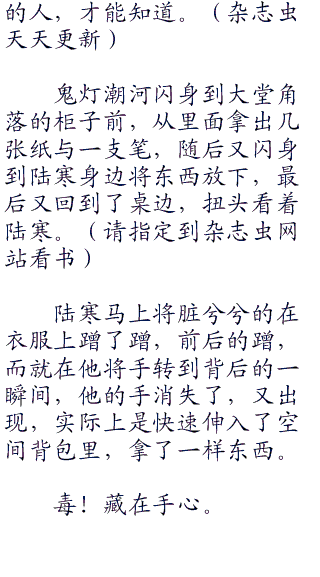 的人，才能知道。（杂志虫
天天更新）
鬼灯潮河闪身到大堂角
落的柜子前，从里面拿出几
张纸与一支笔，随后又闪身
到陆寒身边将东西放下，最
后又回到了桌边，扭头看着
陆寒。（请指定到杂志虫网
站看书）
陆寒马上将脏兮兮的在
衣服上蹭了蹭，前后的蹭，
而就在他将手转到背后的一
瞬间，他的手消失了，又出
现，实际上是快速伸入了空
间背包里，拿了一样东西。
毒！藏在手心。